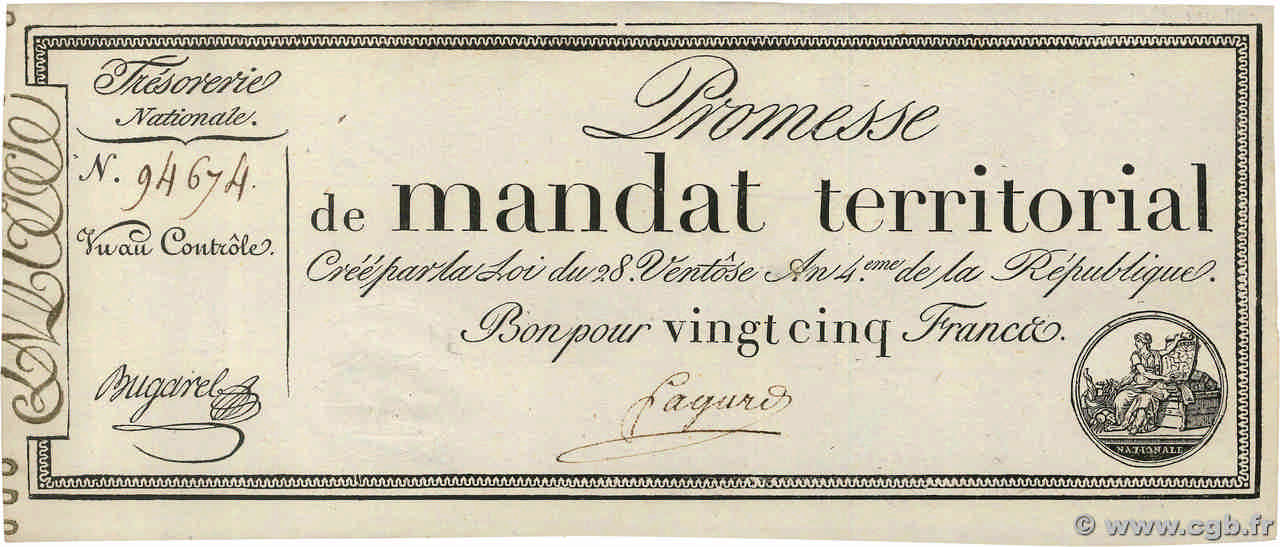 Trésorerie
Nationale.
N. 94674.
Vu au Contrôle.
Bugarel
Promesse
de mandat territorial
Créé par la Loi du 28. Ventôse An 4.eme de la République.
Bon pour vingt cinq Francs.
NATIONALE
© www.cgb.fr